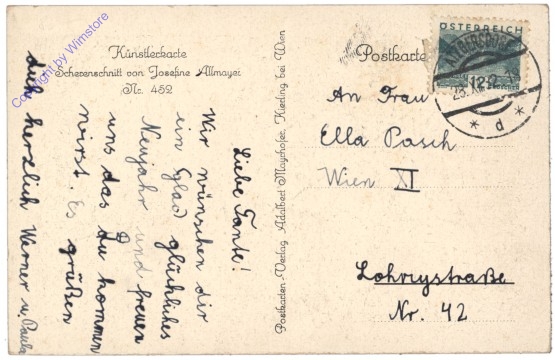 Künstlerkarte
Scherenschnitt von Josefine Allmayer
Nr. 452
Liebe Tante!
Wir wünschen dir
ein glückliches
Neujahr und freuen
uns das du kommen
wirst. Es grüßen
dich herzlich Werner u. Paula
Postkarten-Verlag Adalbert Mayrhofer, Kierling bei Wien
Postkarte
ÖSTERREICH
12
* d *
An Frau
Ella Pasch
Wien XI
Lohrystraße
Nr. 42
Copyright by Wimstore